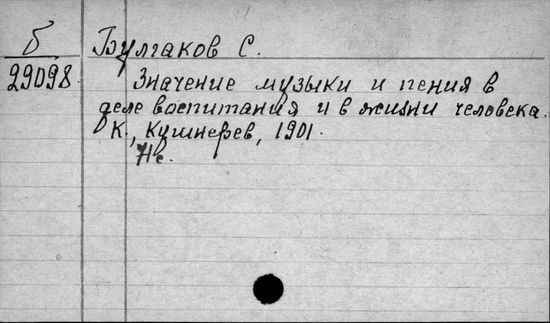 Б Булгаков С.
29098 Значение музыки и пения в
деле воспитания и в жизни человека.
К., Кушнерев, 1901.
71с.